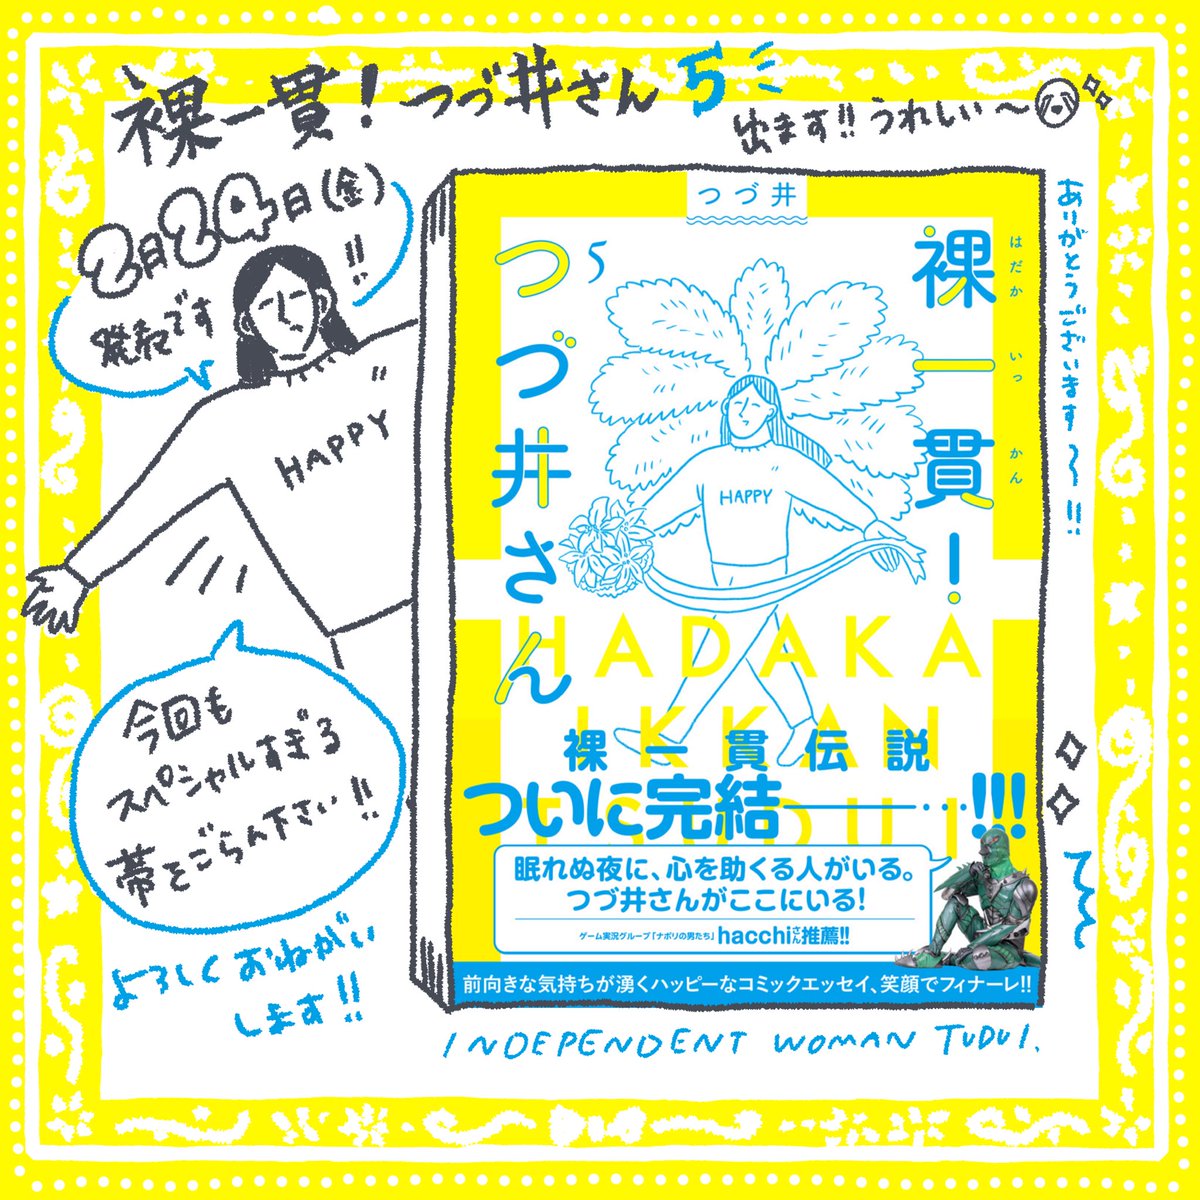 裸一貫！つづ井さん5
出ます!!うれしい〜
2月24日(金)
発売です!!
ありがとうございます〜!!
HAPPY
今回も
スペシャルすぎる
帯をごらん下さい!!
よろしくおねがい
します!!
つづ井
裸一貫！
はだか いっ かん
つづ井さん
5
HAPPY
HADAKA
IKKAN
TSUDUI
裸一貫伝説
ついに完結――…!!!
眠れぬ夜に、心を助くる人がいる。
つづ井さんがここにいる！
ゲーム実況グループ「ナポリの男たち」hacchiさん推薦!!
前向きな気持ちが湧くハッピーなコミックエッセイ、笑顔でフィナーレ!!
INDEPENDENT WOMAN TUDUI.